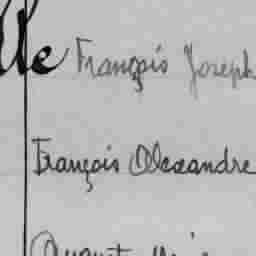 lle François Joseph
François Alexandre
August